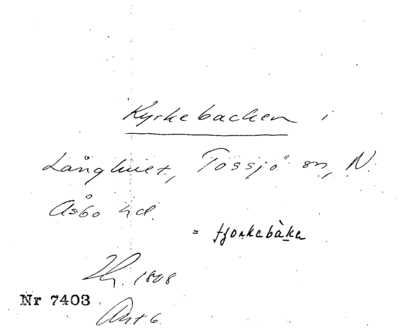 Kyrkebacken i
Långhuset, Tossjö sn, N.
Åsbo hd.
= tjorkebàka
1808
Nr 7403
Ant 6.